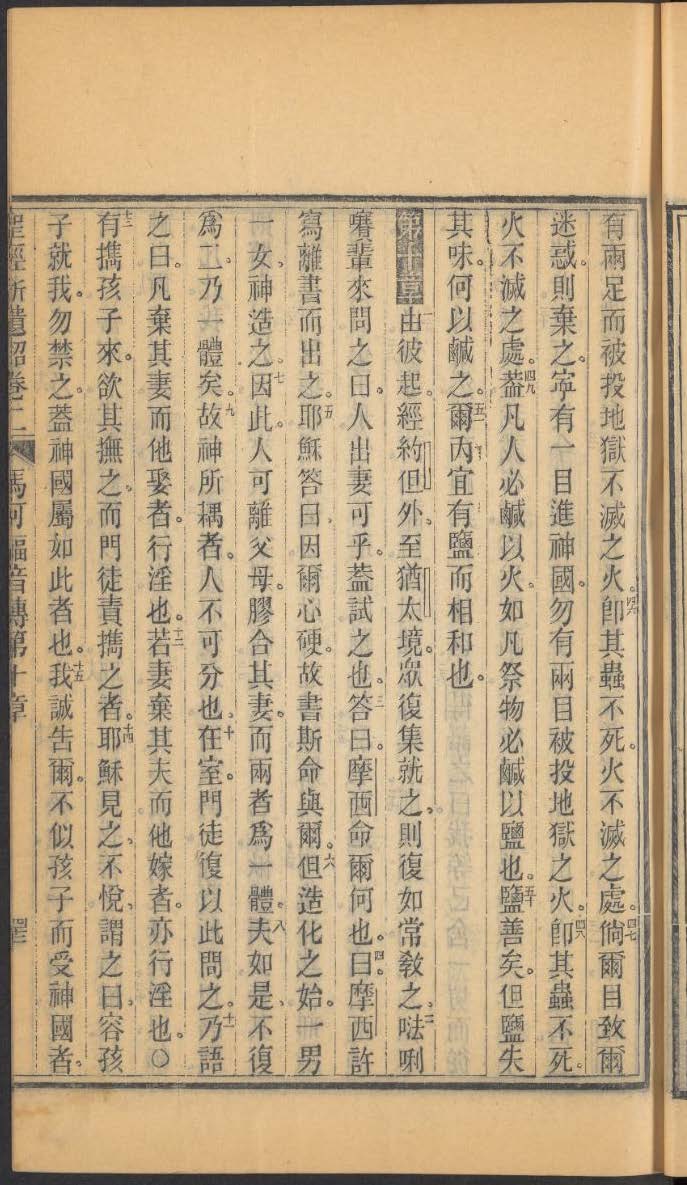 有兩足而被投地獄不滅之火。四六卽其蟲不死。火不滅之處。四七倘爾目致爾
迷惑。則棄之。寧有一目進神國。勿有兩目被投地獄之火。四八卽其蟲不死。
火不滅之處。四九蓋凡人必鹹以火。如凡祭物必鹹以鹽也。五十鹽善矣。但鹽失
其味。何以鹹之。爾內宜有鹽而相和也。
第十章一由彼起。經約但外。至猶太境。眾復集就之。則復如常敎之。二𠵽唎
嚌輩來問之曰。人出妻可乎。蓋試之也。三答曰。摩西命爾何也。四曰。摩西許
寫離書而出之。五耶穌答曰。因爾心硬。故書斯命與爾。六但造化之始。一男
一女、神造之。七因此。人可離父母。膠合其妻。而兩者爲一體。八夫如是、不復
爲二。乃一體矣。九故神所耦者。人不可分也。十在室。門徒復以此問之。十一乃語
之曰。凡棄其妻而他娶者。行淫也。十二若妻棄其夫而他嫁者。亦行淫也。〇
十三有攜孩子來。欲其撫之。而門徒責攜之者。十四耶穌見之、不悅、謂之曰、容孩
子就我。勿禁之。蓋神國屬如此者也。十五我誠告爾。不似孩子而受神國者。
聖經新遺詔卷二 馬可福音傳第十章